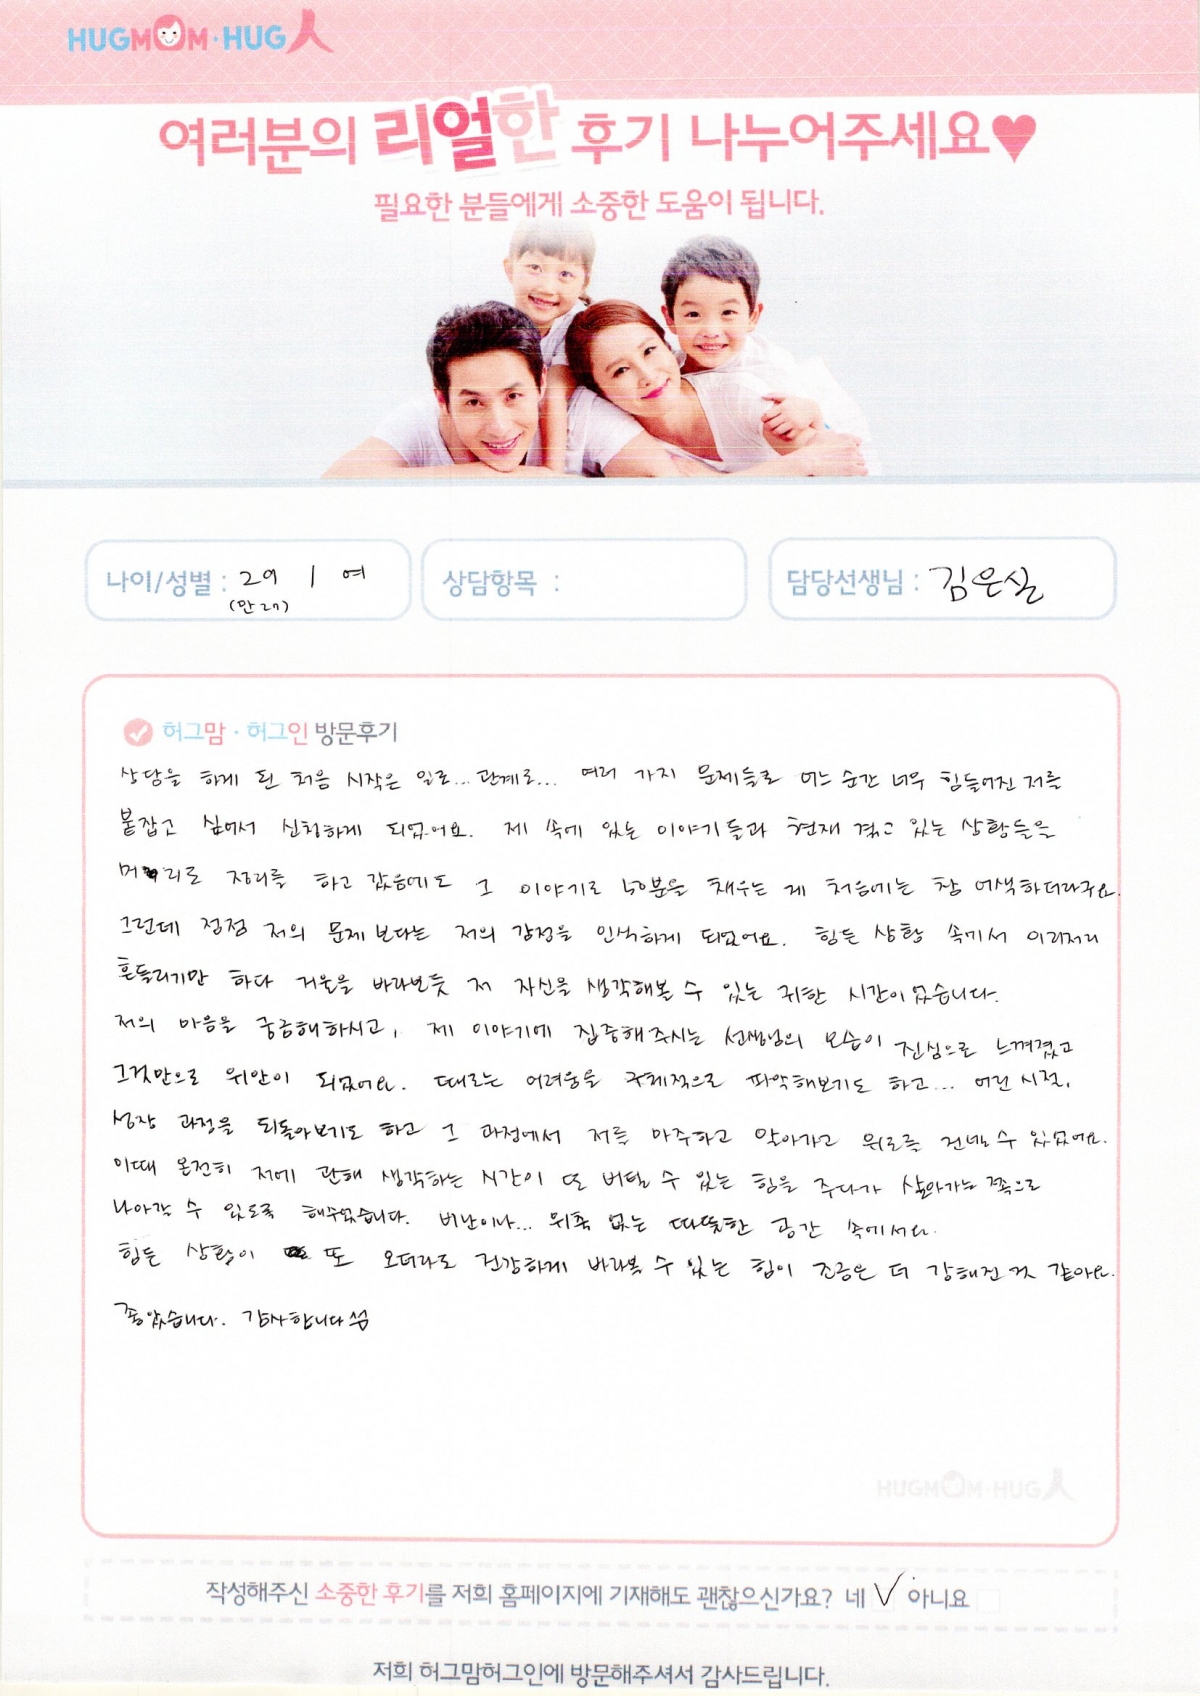 HUGMOM·HUG人
여러분의 리얼한 후기 나누어주세요♥
필요한 분들에게 소중한 도움이 됩니다.
나이/성별 : 29 / 여
(만 27)
상담항목 :
담당선생님 : 김은실
허그맘·허그인 방문후기
상담을 하게 된 처음 시작은 일로... 관계로... 여러 가지 문제들로 어느 순간 너무 힘들어진 저를
붙잡고 싶어서 신청하게 되었어요. 제 속에 있는 이야기들과 현재 겪고 있는 상황들을
머리로 정리를 하고 갔음에도 그 이야기로 50분을 채우는 게 처음에는 참 어색하더라구요.
그런데 점점 저의 문제보다는 저의 감정을 인식하게 되었어요. 힘든 상황 속에서 이리저리
흔들리기만 하다 거울을 바라보듯 저 자신을 생각해볼 수 있는 귀한 시간이었습니다.
저의 마음을 궁금해하시고, 제 이야기에 집중해주시는 선생님의 모습이 진심으로 느껴졌고
그것만으로 위안이 되었어요. 때로는 어려움을 구체적으로 파악해보기도 하고... 어린 시절,
성장 과정을 되돌아보기도 하고 그 과정에서 저를 마주하고 알아가고 위로를 건넬 수 있었어요.
이때 온전히 저에 관해 생각하는 시간이 또 버틸 수 있는 힘을 주다가 살아가는 쪽으로
나아갈 수 있도록 해주었습니다. 비난이나... 위축 없는 따뜻한 공간 속에서요.
힘든 상황이 또 오더라도 건강하게 바라볼 수 있는 힘이 조금은 더 강해진 것 같아요.
좋았습니다. 감사합니다
HUGMOM·HUG人
작성해주신 소중한 후기를 저희 홈페이지에 기재해도 괜찮으신가요? 네 ✓ 아니요
저희 허그맘허그인에 방문해주셔서 감사드립니다.